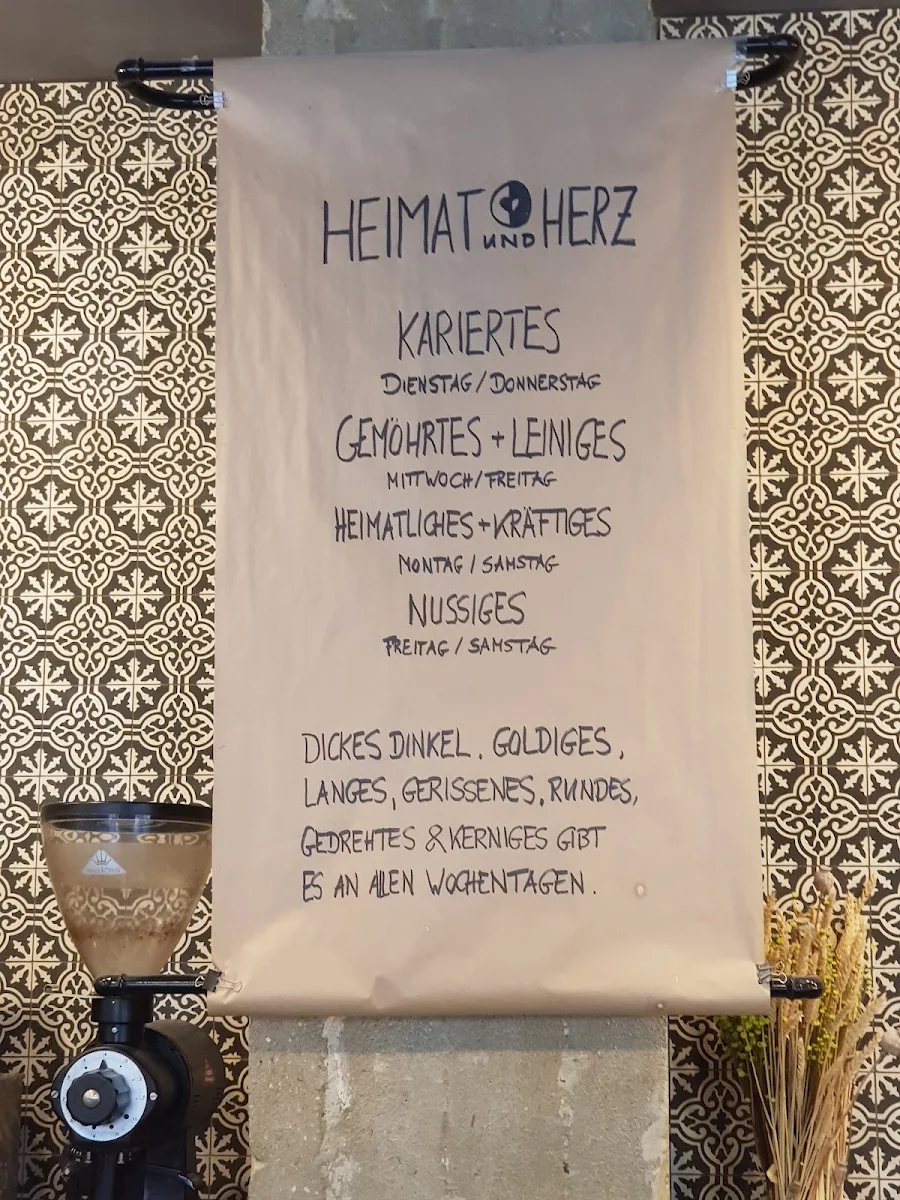 HEIMAT UND HERZ
KARIERTES
DIENSTAG/DONNERSTAG
GEMÖHRTES + LEINIGES
MITTWOCH/FREITAG
HEIMATLICHES + KRÄFTIGES
MONTAG / SAMSTAG
NUSSIGES
FREITAG / SAMSTAG
DICKES DINKEL, GOLDIGES,
LANGES, GERISSENES, RUNDES,
GEDREHTES & KERNIGES GIBT
ES AN ALLEN WOCHENTAGEN.
MAHLKÖNIG